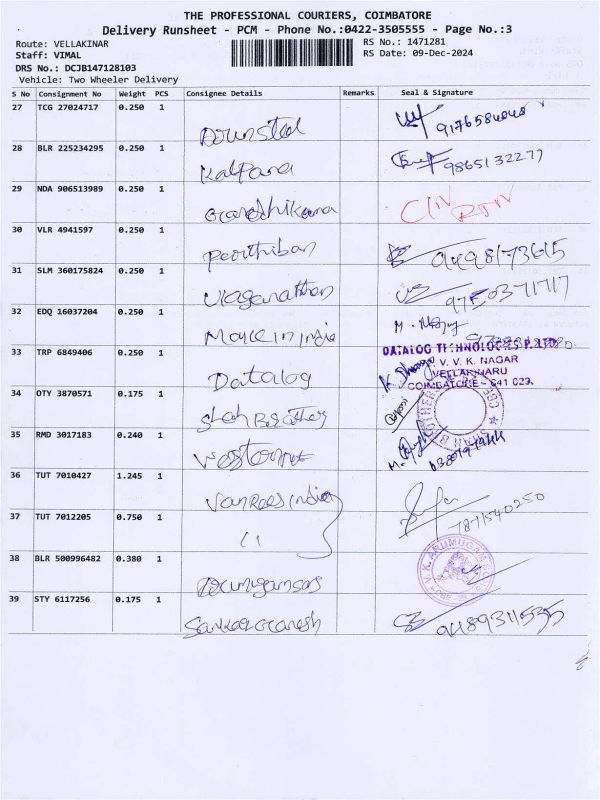 THE PROFESSIONAL COURIERS, COIMBATORE
Delivery Runsheet - PCM - Phone No.:0422-3505555 - Page No.:3
Route: VELLAKINAR
RS No.: 1471281
Staff: VIMAL
RS Date: 09-Dec-2024
DRS No.: DCJB147128103
Vehicle: Two Wheeler Delivery
S No Consignment No Weight PCS Consignee Details Remarks Seal & Signature
27 TCG 27024717 0.250 1
28 BLR 225234295 0.250 1 Kalpana 9865132277
29 NDA 906513989 0.250 1
30 VLR 4941597 0.250 1 Parthiban 9498173615
31 SLM 360175824 0.250 1
32 EDQ 16037204 0.250 1 Make in india
33 TRP 6849406 0.250 1 Datalog DATALOG TECHNOLOGIES P. LTD
V. V. K. NAGAR
VELLAKINARU
COIMBATORE - 641 029.
34 OTY 3870571 0.175 1 Shah Brother
35 RMD 3017183 0.240 1
36 TUT 7010427 1.245 1 VanRees india 7871540250
37 TUT 7012205 0.750 1 11
38 BLR 500996482 0.380 1 V.K. ARUMUGAM
39 STY 6117256 0.175 1 Sankar Ganesh 9489311535